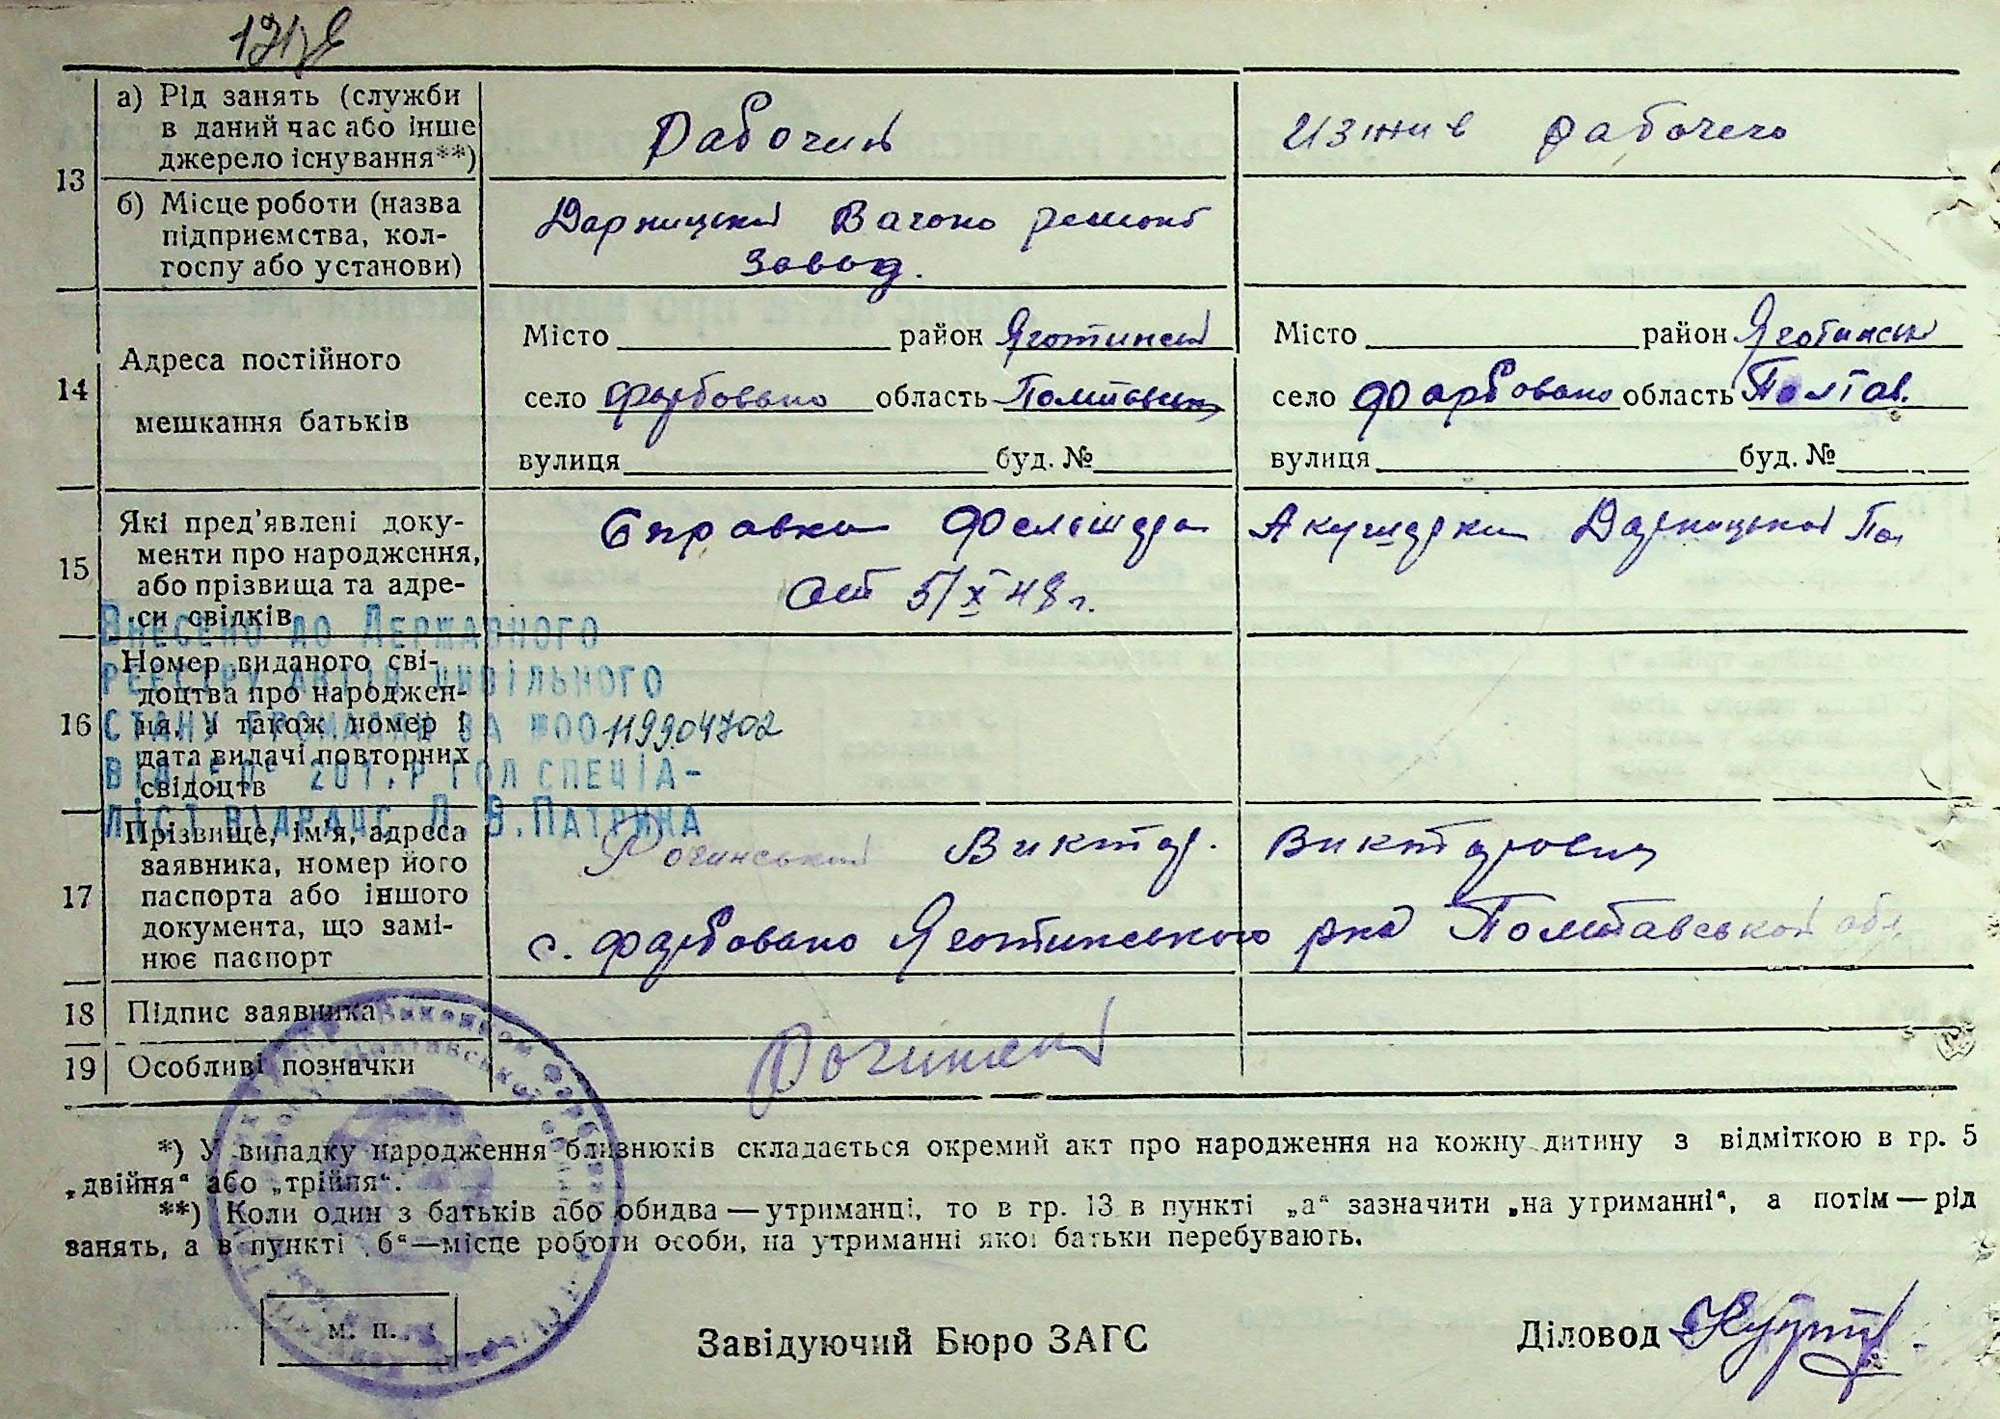 13
а) Рід занять (служби
в даний час або інше
джерело існування**)
Рабочий
изжив рабочего
б) Місце роботи (назва
підприємства, кол-
госпу або установи)
Дарницький Вагоно ремонт
завод.
14
Адреса постійного
мешкання батьків
Місто район Яготинськ
село Фарбовано область Полтавськ
вулиця буд. №
Місто район Яготинськ
село Фарбовано область Полтав.
вулиця буд. №
15
Які пред'явлені доку-
менти про народження,
або прізвища та адре-
си свідків
Справка Фельшера Акушерки Дарницької По
от 5/X 48 г.
16
Номер виданого сві-
доцтва про народжен-
ня, а також номер і
дата видачі повторних
свідоцтв
Внесено до Державного
реєстру актів цивільного
стану громадян за №00119904702
від 201 р гол спеціа-
ліст відрацс Л.В.Патрина
17
Прізвище, ім'я, адреса
заявника, номер його
паспорта або іншого
документа, що замі-
нює паспорт
Рочинський Виктор. Викторович
с. Фарбовано Яготинського рна Полтавськой обл
18
Підпис заявника
19
Особливі позначки
Рочинский
*) У випадку народження близнюків складається окремий акт про народження на кожну дитину з відміткою в гр. 5
„двійня“ або „трійня“.
**) Коли один з батьків або обидва — утриманці, то в гр. 13 в пункті „а“ зазначити „на утриманні“, а потім — рід
занять, а в пункті „б“—місце роботи особи, на утриманні якої батьки перебувають.
м. п.
Завідуючий Бюро ЗАГС
Діловод